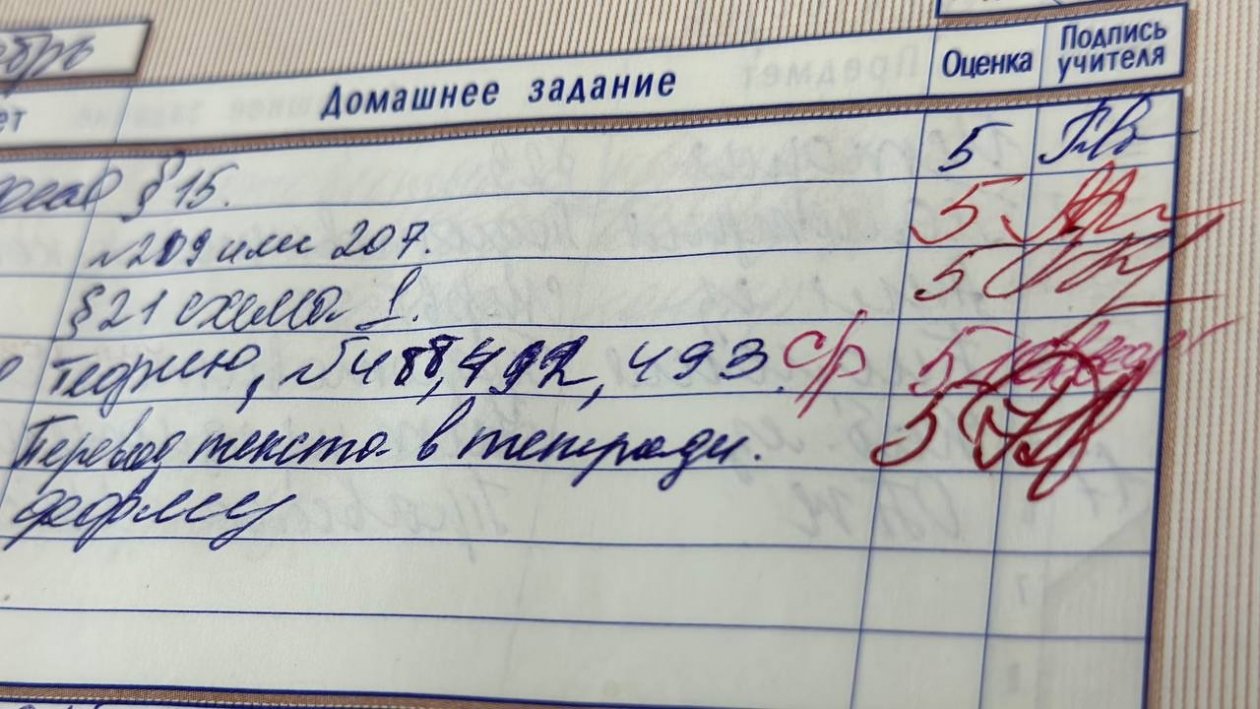 Домашнее задание Оценка Подпись учителя
§ 15. 5
№209 или 207. 5
§ 21 схема 1. 5
Теорию, №488, 492, 493. С/р 5
Перевод текста в тетради. 5
форму